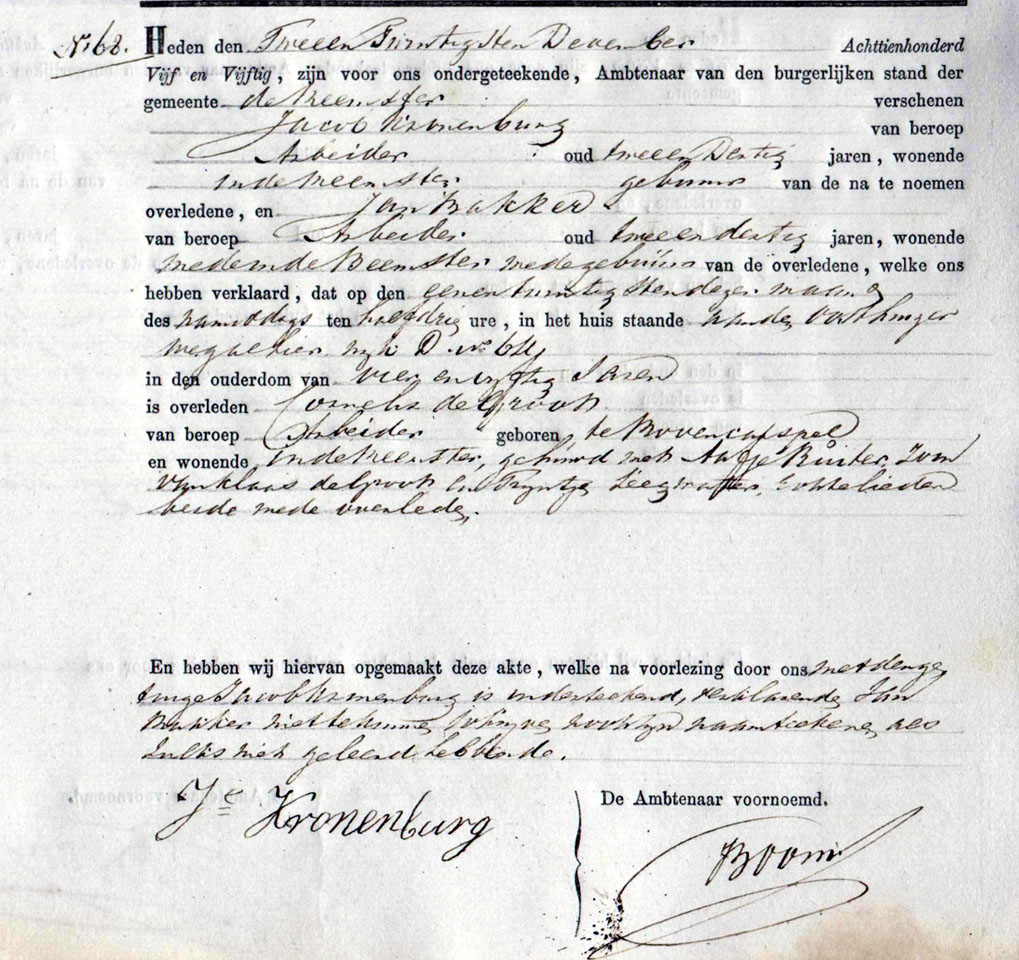 No 68. Heden den Tweeen Twintigsten December Achttienhonderd
Vijf en Vijftig, zijn voor ons ondergeteekende, Ambtenaar van den burgerlijken stand der
gemeente de Beemster verschenen
Jacob Kronenburg van beroep
Arbeider oud tweeen Dertig jaren, wonende
in de Beemster gebuur van de na te noemen
overledene, en Jan Bakker
van beroep Arbeider oud twee en dertig jaren, wonende
mede in de Beemster mede gebuur van de overledene, welke ons
hebben verklaard, dat op den eenen twintigsten dezer maand
des namiddags ten half drie ure, in het huis staande aan den
wijk D no 64
in den ouderdom van vier en vijftig Jaren
is overleden Cornelis de Groot
van beroep Arbeider geboren te Bovencarspel
en wonende in de Beemster, gehuwd met Aafje Ruiter, Zoon
van Klaas de Groot en Trijntje Leegwater, Echtelieden
beide mede overleden.
En hebben wij hiervan opgemaakt deze akte, welke na voorlezing door ons met den ge
tuige Jacob Kronenburg is onderteekend, verklarende Jan
Bakker niet te kunnen schrijven noch zijn naam teekenen als
zulks niet geleerd hebbende.
Jb Kronenburg
De Ambtenaar voornoemd.
Boom